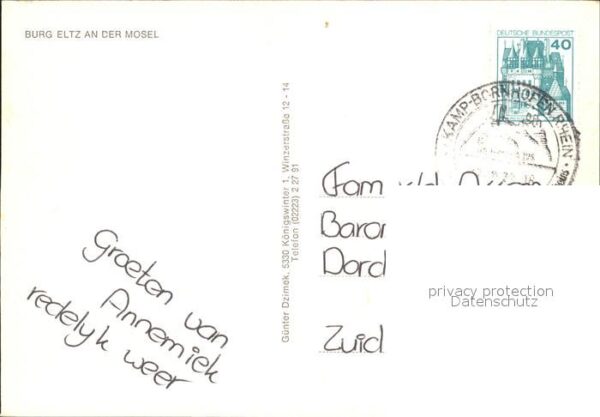 BURG ELTZ AN DER MOSEL
DEUTSCHE BUNDESPOST
40
KAMP-BORNHOFEN RHEIN
Günter Dzimek, 5330 Königswinter 1, Winzerstraße 12 - 14
Telefon (02223) 2 27 91
Groeten van
Annemiek
redelyk weer
Fam v/d
Baron
Dord
Zuid
privacy protection
Datenschutz